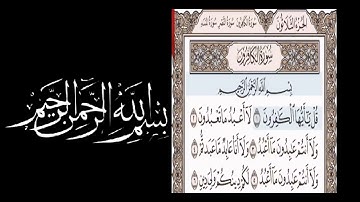 بِسْمِ اللَّهِ الرَّحْمَنِ الرَّحِيمِ
الجزء الثلاثون
سورة الكافرون
بِسْمِ اللَّهِ الرَّحْمَنِ الرَّحِيمِ
قُلْ يَٰٓأَيُّهَا ٱلْكَٰفِرُونَ ١ لَآ أَعْبُدُ مَا تَعْبُدُونَ ٢
وَلَآ أَنتُمْ عَٰبِدُونَ مَآ أَعْبُدُ ٣ وَلَآ أَنَا۠ عَابِدٌ مَّا عَبَدتُّمْ ٤
وَلَآ أَنتُمْ عَٰبِدُونَ مَآ أَعْبُدُ ٥ لَكُمْ دِينُكُمْ وَلِيَ دِينِ ٦